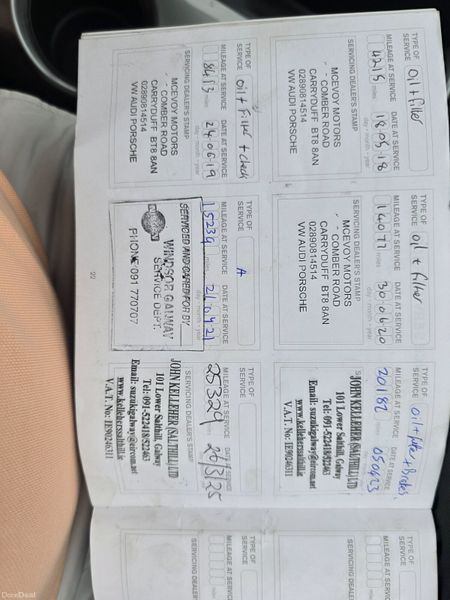 TYPE OF SERVICE oil + filter
MILEAGE AT SERVICE DATE AT SERVICE
4215 miles 18 05 18
day month year
SERVICING DEALER'S STAMP
MCEVOY MOTORS
COMBER ROAD
CARRYDUFF BT8 8AN
02890814514
VW AUDI PORSCHE
TYPE OF SERVICE oil + filter
MILEAGE AT SERVICE DATE AT SERVICE
14071 miles 30 06 20
day month year
MCEVOY MOTORS
COMBER ROAD
CARRYDUFF BT8 8AN
02890814514
VW AUDI PORSCHE
TYPE OF SERVICE oil + filter + Brakes
MILEAGE AT SERVICE DATE AT SERVICE
20182 05 04 23
JOHN KELLEHER (SALTHILL) LTD
101 Lower Salthill, Galway
Tel: 091-522418/522463
Email: suzukigalway@eircom.net
www.kelleherssalthill.ie
V.A.T. No: IE9024631I
TYPE OF SERVICE
MILEAGE AT SERVICE
SERVICING DEALER
TYPE OF SERVICE oil + Filter + check
MILEAGE AT SERVICE DATE AT SERVICE
8413 miles 24 06 19
day month year
SERVICING DEALER'S STAMP
MCEVOY MOTORS
COMBER ROAD
CARRYDUFF BT8 8AN
02890814514
VW AUDI PORSCHE
TYPE OF SERVICE A
MILEAGE AT SERVICE DATE AT SERVICE
15239 miles 21 04 21
day month year
SERVICED AND CARED FOR BY
WINDSOR GALWAY
SERVICE DEPT.
PHONE 091 770707
TYPE OF SERVICE
MILEAGE AT SERVICE DATE AT SERVICE
25329 26/3/25
JOHN KELLEHER (SALTHILL) LTD
101 Lower Salthill, Galway
Tel: 091-522418/522463
Email: suzukigalway@eircom.net
www.kelleherssalthill.ie
V.A.T. No: IE9024631I
TYPE OF SERVICE
MILEAGE AT SERVICE
SERVICING DEALER
DoneDeal